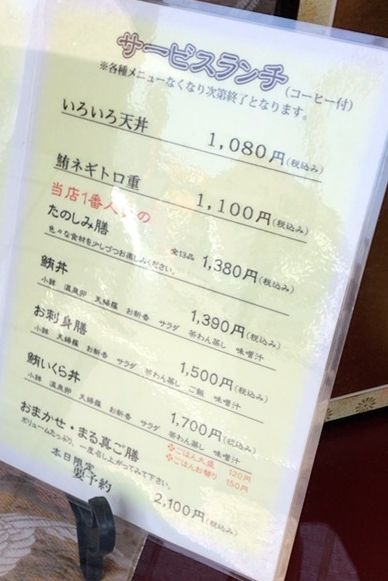 サービスランチ(コーヒー付)
※各種メニューなくなり次第終了となります。
いろいろ天丼 1,080円(税込み)
鮪ネギトロ重 1,100円(税込み)
当店1番人 の
たのしみ膳 全13品 1,380円(税込み)
色々な食材を少しづつお楽しみください。
鮪丼 1,390円(税込み)
小鉢 温泉卵 天婦羅 お新香 サラダ 茶わん蒸し 味噌汁
お刺身膳 1,500円(税込み)
小鉢 天婦羅 お新香 サラダ 茶わん蒸し ご飯 味噌汁
鮪いくら丼 1,700円(税込み)
小鉢 温泉卵 天婦羅 お新香 サラダ 茶わん蒸し 味噌汁
おまかせ・まる真ご膳
ボリュームたっぷり、一度召し上がってみて下さい。
❖ごはん大盛 120円
❖ごはんお替り 150円
本日限定
要予約 2,100円(税込み)